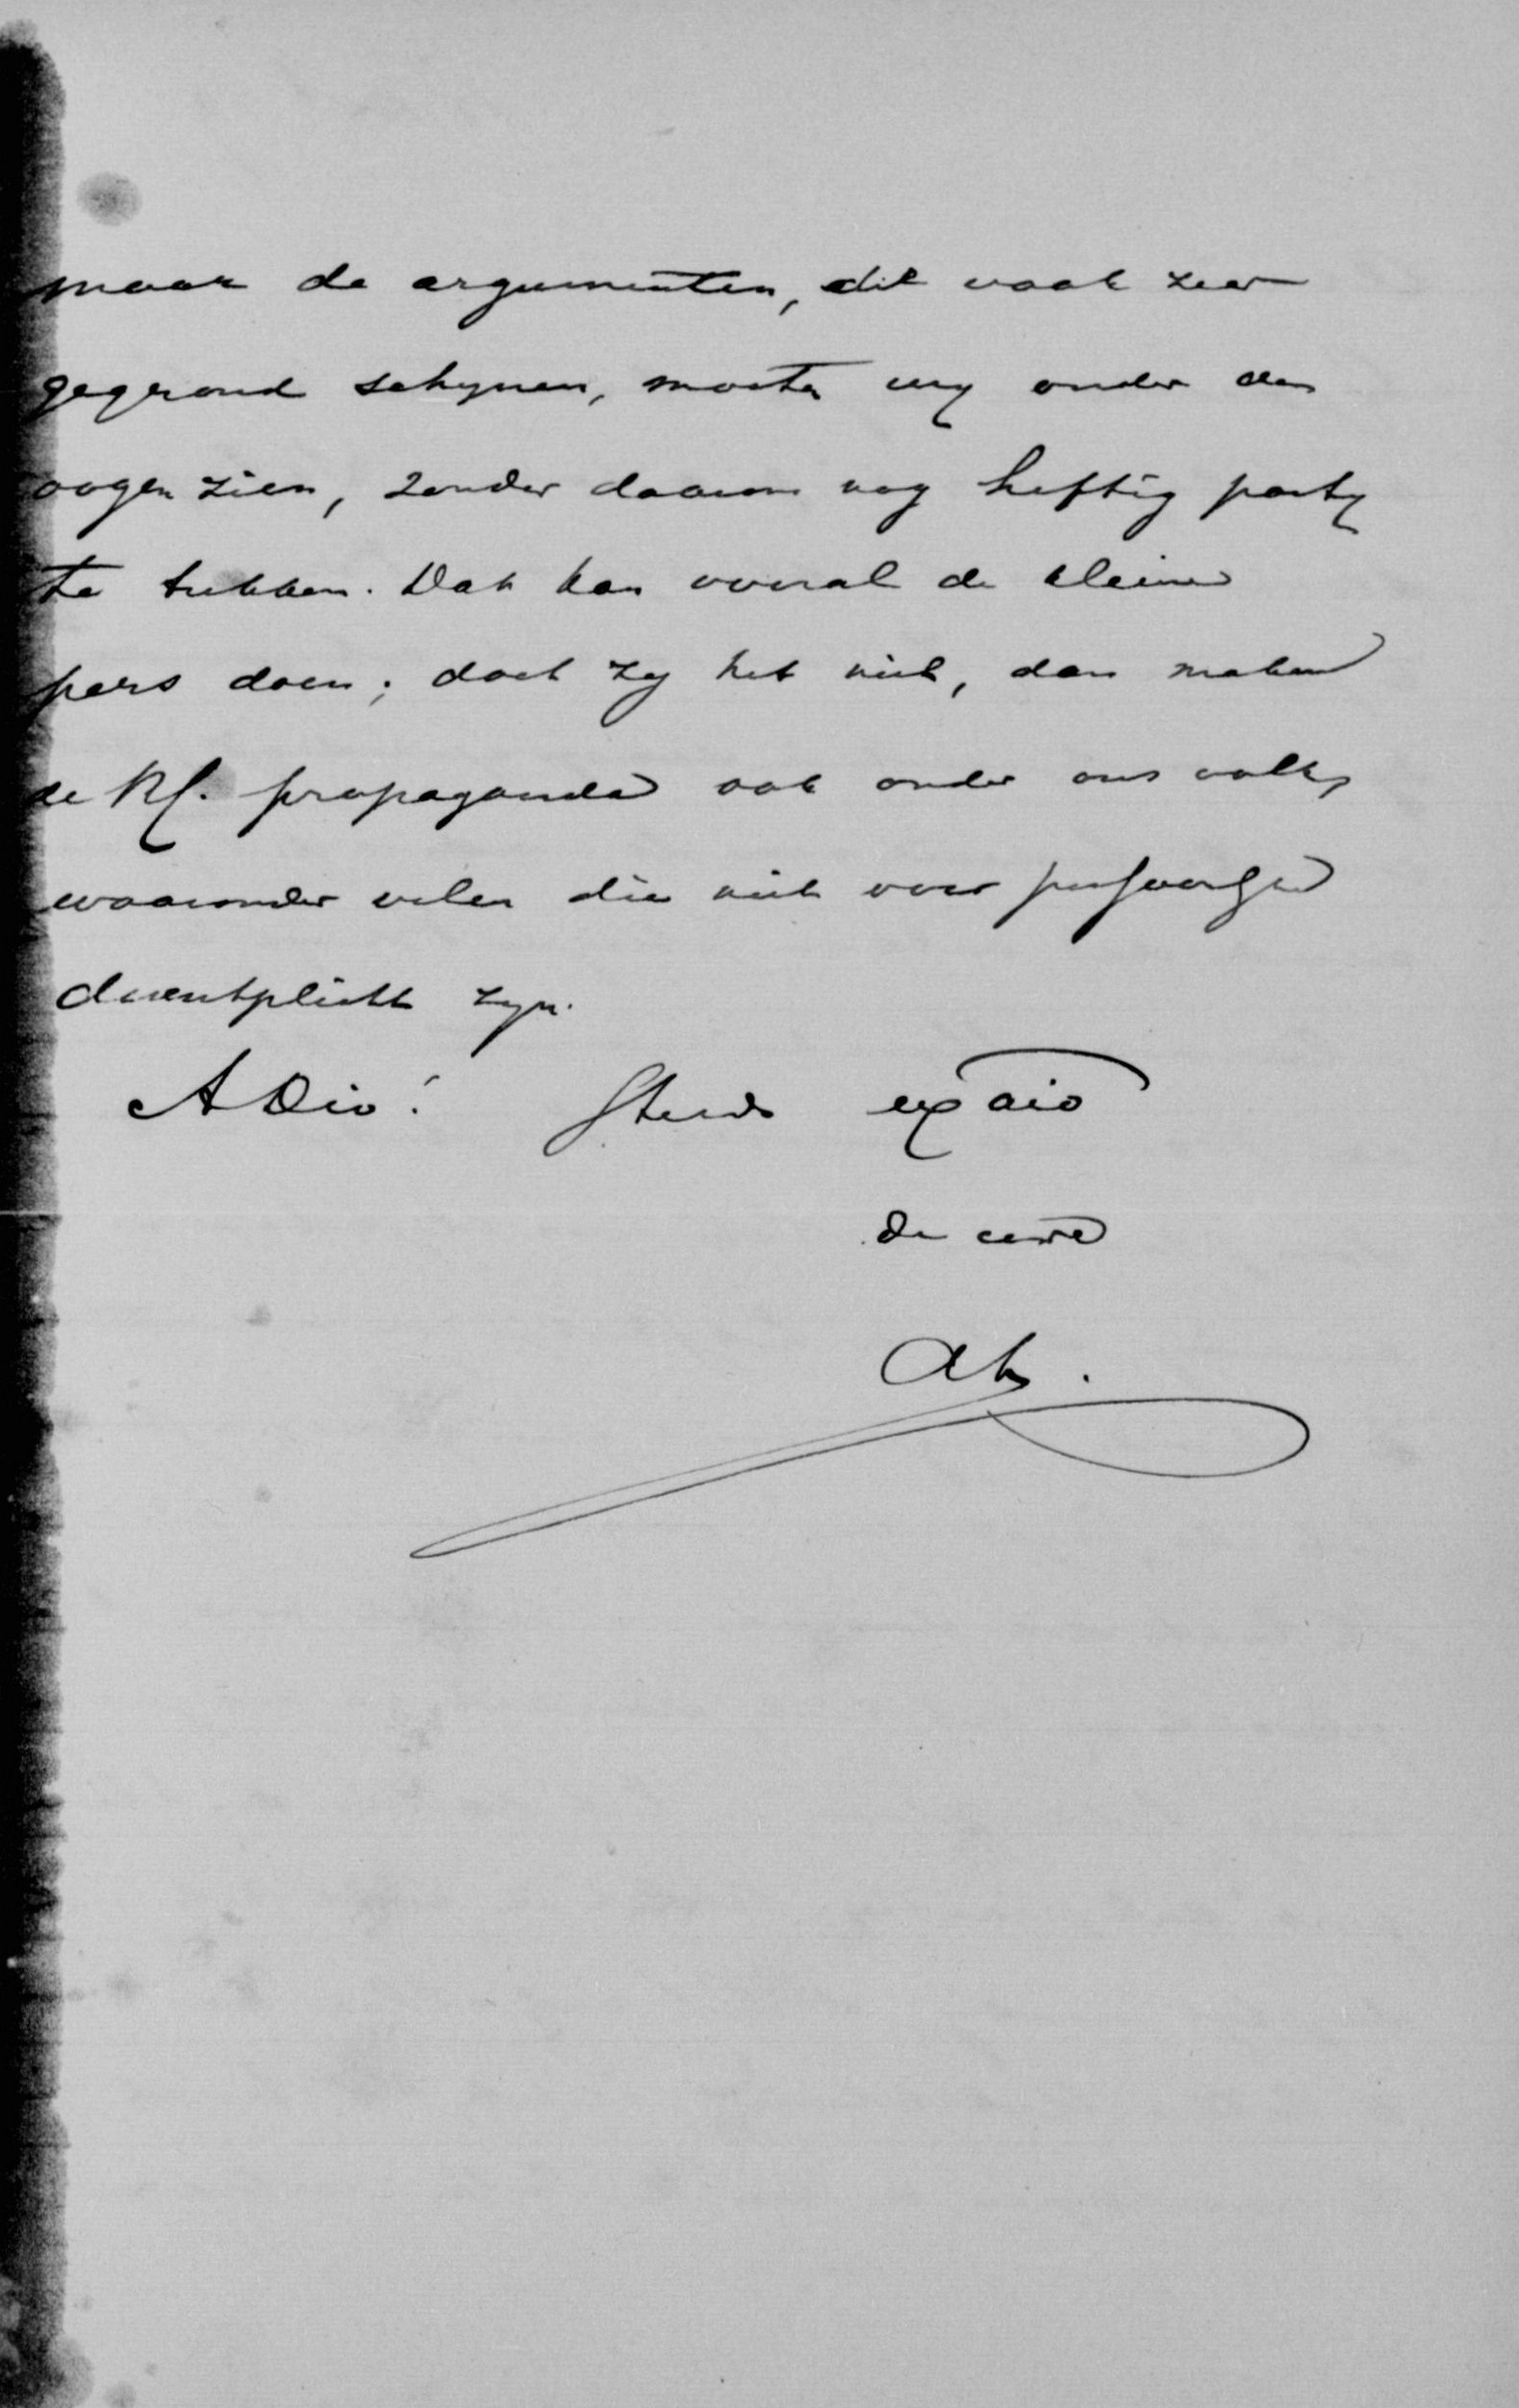 maar de argumenten, die vaak zeer
gegrond schynen, moeten wy onder de
oogen zien, zonder daarom nog heftig party
te trekken. Dat kan vooral de kleine
pers doen; doet zy het niet, dan maken
de propaganda ook onder ons volk,
waaronder velen die niet voor persoonlyke
dienstplicht zyn.
A Dio! Steeds ex aio
de uwe